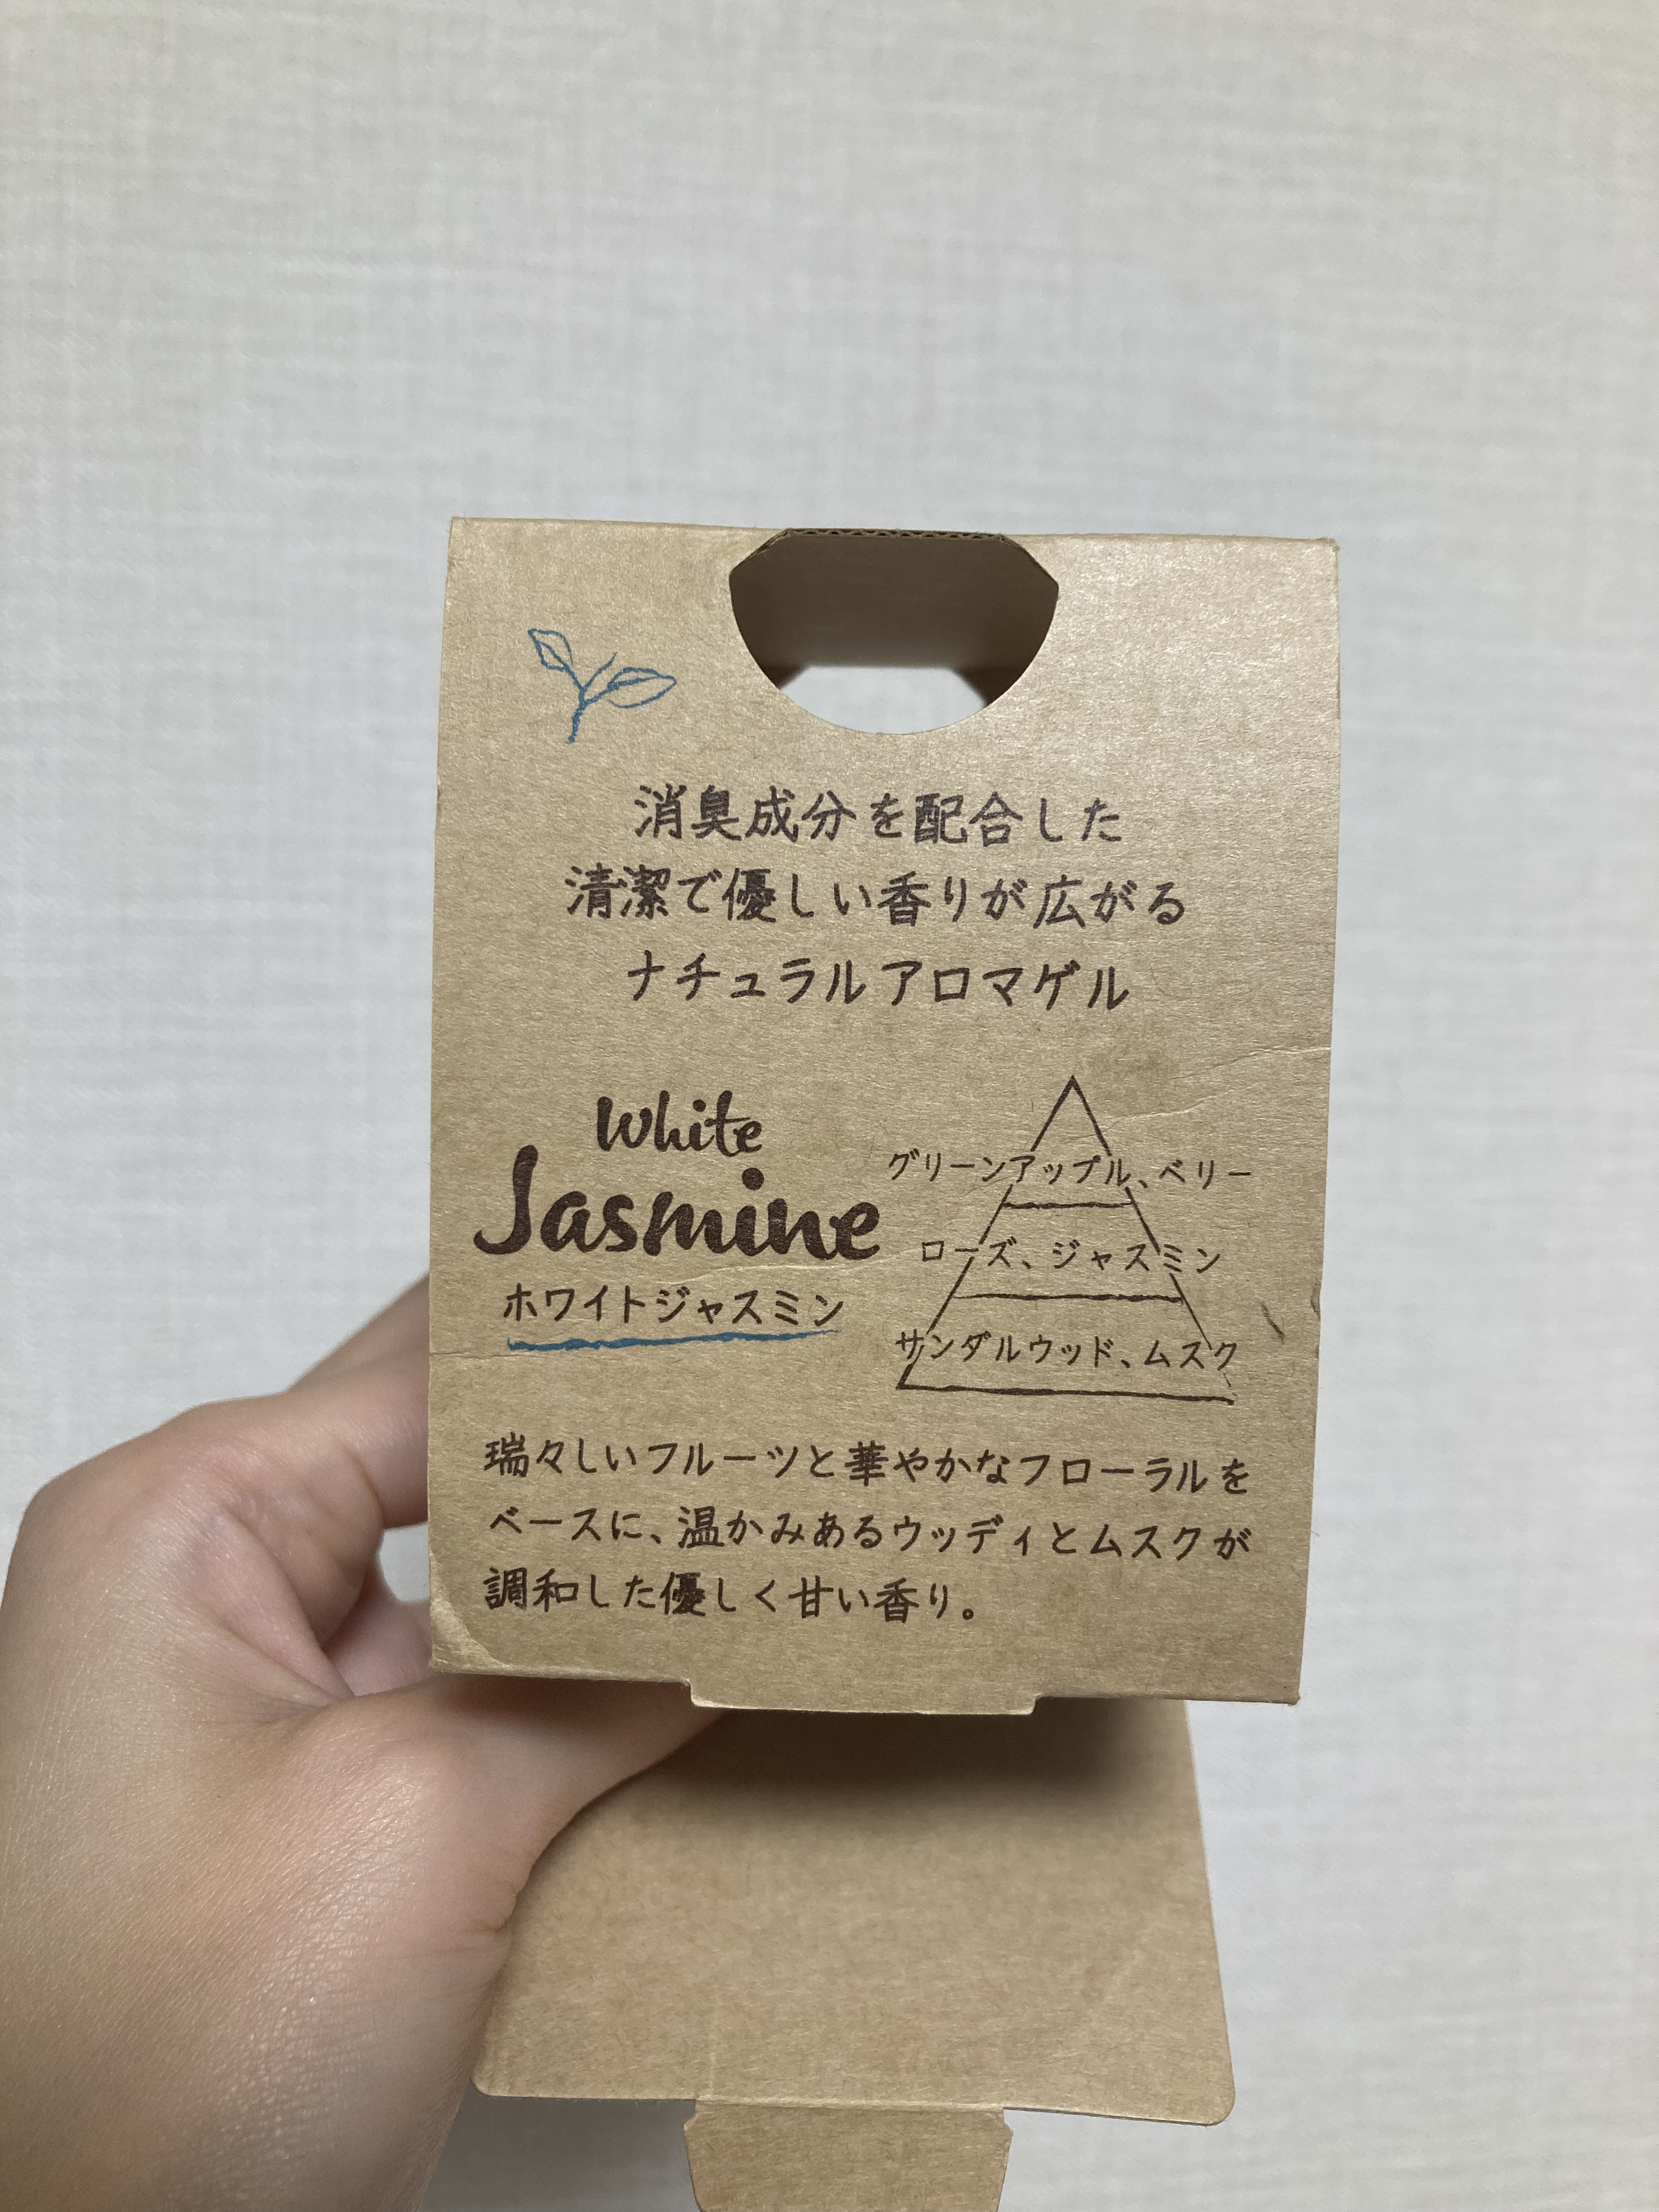 消臭成分を配合した
清潔で優しい香りが広がる
ナチュラルアロマゲル
White
Jasmine
ホワイトジャスミン
グリーンアップル、ベリー
ローズ、ジャスミン
サンダルウッド、ムスク
瑞々しいフルーツと華やかなフローラルを
ベースに、温かみあるウッディとムスクが
調和した優しく甘い香り。